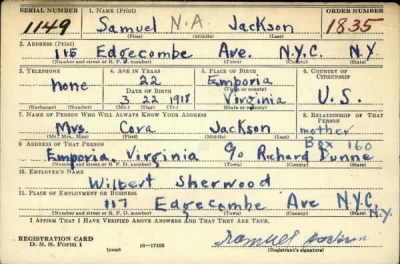 SERIAL NUMBER 1. NAME (Print) ORDER NUMBER
1149 Samuel N.A. Jackson 1835
(First) (Middle) (Last)
2. ADDRESS (Print)
115 Edgecombe Ave. N.Y.C. N.Y.
(Number and street or R. F. D. number) (Town) (County) (State)
3. TELEPHONE 4. AGE IN YEARS 5. PLACE OF BIRTH 6. COUNTRY OF CITIZENSHIP
none 22 Emporia
DATE OF BIRTH (Town or county)
3 22 1918 Virginia U.S.
(Exchange) (Number) (Mo.) (Day) (Yr.) (State or country)
7. NAME OF PERSON WHO WILL ALWAYS KNOW YOUR ADDRESS 8. RELATIONSHIP OF THAT PERSON
Mrs. Cora Jackson mother
(Mr., Mrs., Miss) (First) (Middle) (Last)
9. ADDRESS OF THAT PERSON Box 160
Emporia, Virginia c/o Richard Dunne
(Number and street or R. F. D. number) (Town) (County) (State)
10. EMPLOYER'S NAME
Wilbert Sherwood
11. PLACE OF EMPLOYMENT OR BUSINESS
117 Edgecombe Ave N.Y.C. N.Y.
(Number and street or R. F. D. number) (Town) (County) (State)
I AFFIRM THAT I HAVE VERIFIED ABOVE ANSWERS AND THAT THEY ARE TRUE.
REGISTRATION CARD
D. S. S. Form 1 (over) 16—17105 Samuel Jackson
(Registrant's signature)